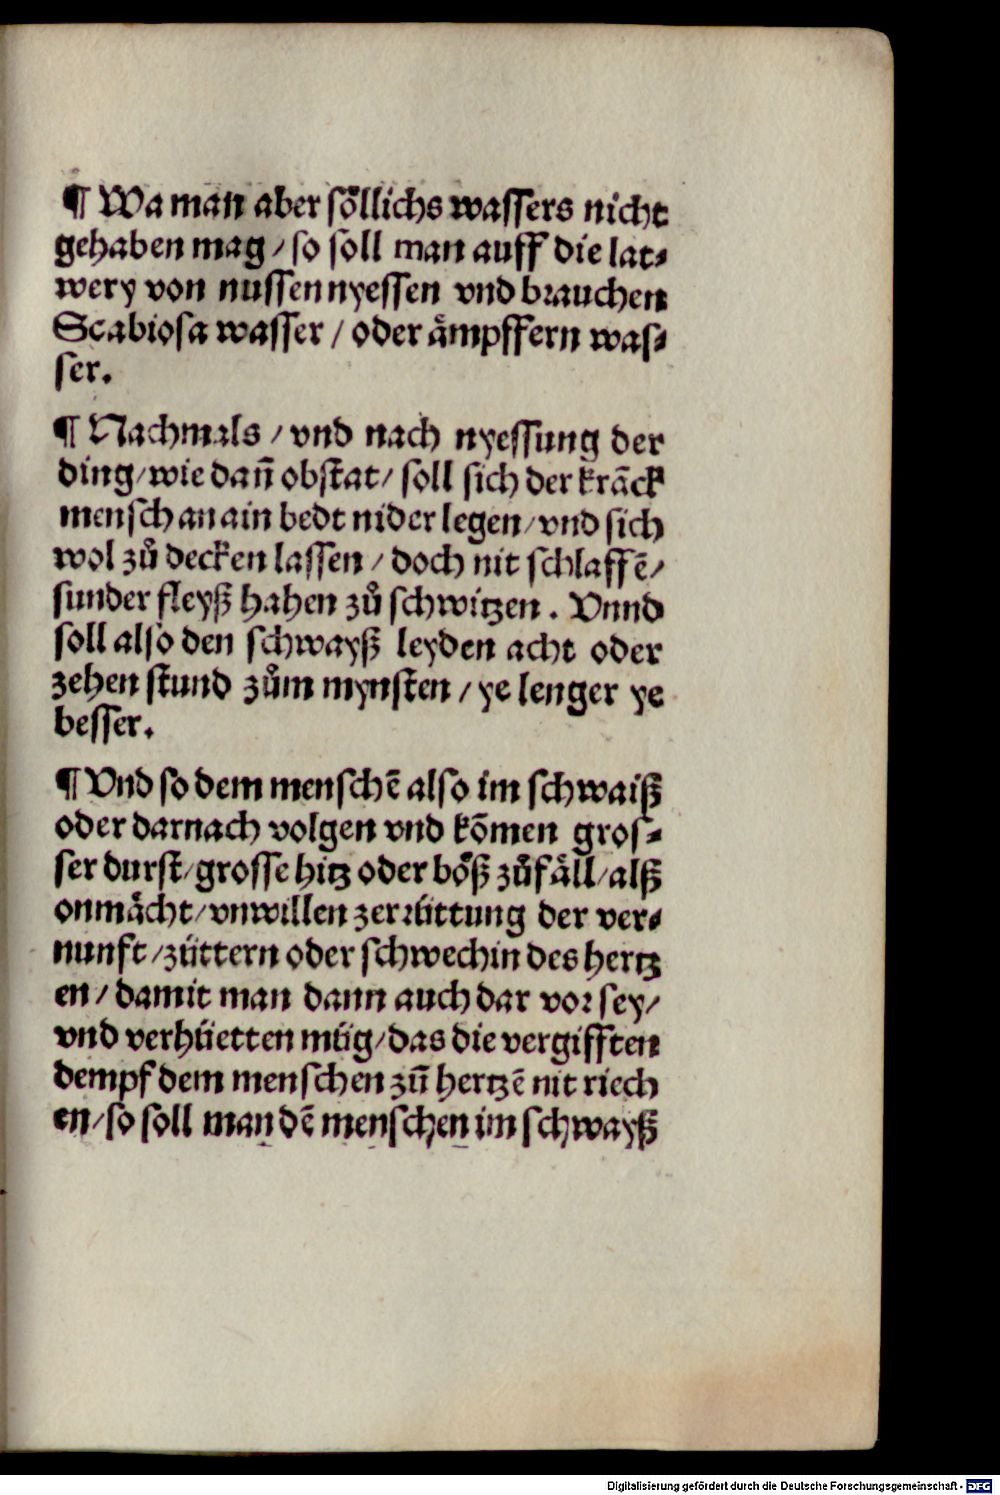 ¶ Wa man aber soͤllichs wassers nicht
gehaben mag / so soll man auff die lat⸗
wery von nussen nyessen vnd brauchen
Scabiosa wasser / oder aͤmpffern was⸗
ser.
¶ Nachmals / vnd nach nyessung der
ding / wie dañ obstat / soll sich der kräck
mensch an ain bedt nider legen / vnd sich
wol zuͦ decken lassen / doch nit schlaffē /
sunder fleyß hahen zuͦ schwitzen . Vnnd
soll also den schwayß leyden acht oder
zehen stund zuͦm mynsten / ye lenger ye
besser.
¶ Vnd so dem menschē also im schwaiß
oder darnach volgen vnd kōmen gros⸗
ser durst / grosse hitz oder boͤß zuͦfaͤll / alß
onmaͤcht / vnwillen zerruͤttung der ver⸗
nunft / zuͤttern oder schwechin des hertz
en / damit man dann auch dar vor sey /
vnd verhuͤetten muͤg / das die vergifften
dempf dem menschen zuͦ hertzē nit riech
en / so soll man dē menschen im schwayß
Digitalisierung gefördert durch die Deutsche Forschungsgemeinschaft - DFG